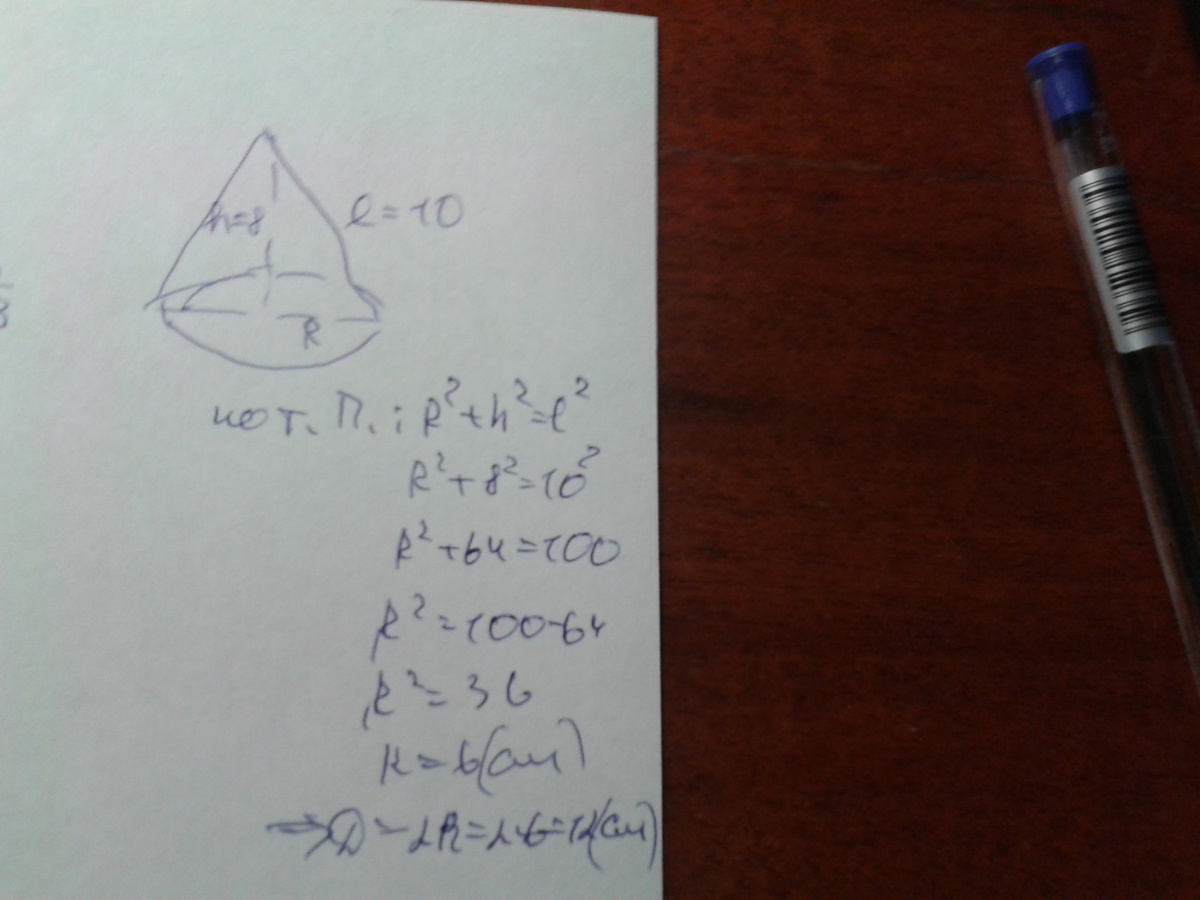 h=8
l=10
R
по т. П.: R²+h²=l²
R²+8²=10²
R²+64=100
R²=100-64
R²=36
R=6(см)
⇒D=2R=2·6=12(см)